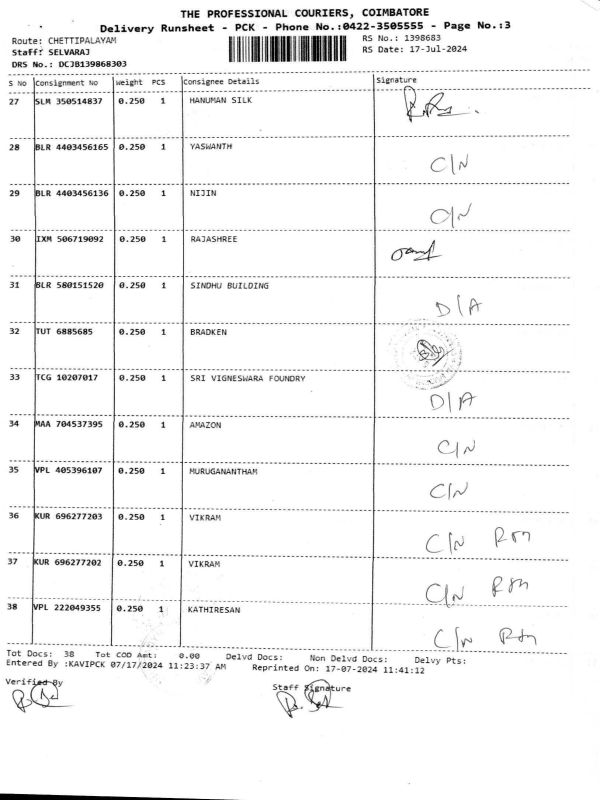 THE PROFESSIONAL COURIERS, COIMBATORE
Delivery Runsheet - PCK - Phone No.:0422-3505555 - Page No.:3
Route: CHETTIPALAYAM RS No.: 1398683
Staff: SELVARAJ RS Date: 17-Jul-2024
DRS No.: DCJB139868303
S No Consignment No Weight PCS Consignee Details Signature
27 SLM 350514837 0.250 1 HANUMAN SILK
28 BLR 4403456165 0.250 1 YASWANTH C/N
29 BLR 4403456136 0.250 1 NIJIN C/N
30 IXM 506719092 0.250 1 RAJASHREE
31 BLR 580151520 0.250 1 SINDHU BUILDING D/A
32 TUT 6885685 0.250 1 BRADKEN
33 TCG 10207017 0.250 1 SRI VIGNESWARA FOUNDRY D/A
34 MAA 704537395 0.250 1 AMAZON C/N
35 VPL 405396107 0.250 1 MURUGANANTHAM C/N
36 KUR 696277203 0.250 1 VIKRAM C/N
37 KUR 696277202 0.250 1 VIKRAM C/N
38 VPL 222049355 0.250 1 KATHIRESAN C/N
Tot Docs: 38 Tot COD Amt: 0.00 Delvd Docs: Non Delvd Docs: Delvy Pts:
Entered By :KAVIPCK 07/17/2024 11:23:37 AM Reprinted On: 17-07-2024 11:41:12
Verified By Staff Signature